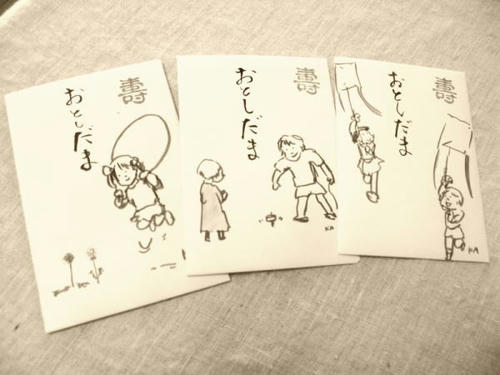 壽
おとしだま
壽
おとしだま
KA
壽
おとしだま
KA